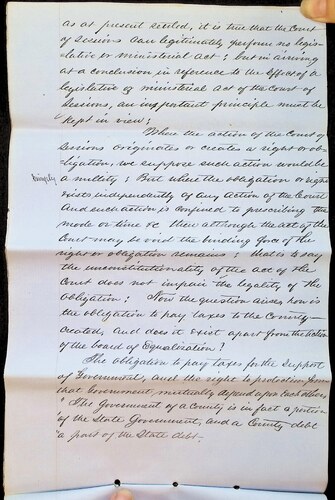 as at present settled, it is true that the Court
of Sessions can legitimately perform no legis-
lative or ministerial act; but in arriving
at a conclusion in reference to the effect of a
legislative or ministerial act of the Court of
Sessions, an important principle must be
kept in view;
Where the action of the Court of
Sessions originates or creates a right or ob-
ligation, we suppose such action would be
a nullity; But where the obligation or right
exists independently of any action of the Court
and such action is confined to prescribing the
mode or time &c then although the act of the
Court may be void the binding force of the
right or obligation remains; that is to say
the unconstitutionality of the act of the
Court does not impair the legality of the
obligation; Now the question arises how is
the obligation to pay taxes to the County
created, and does it exist apart from the action
of the board of Equalization?
The obligation to pay taxes for the support
of Government, and the right to protection from
that Government, mutually depend upon each other.
"The Government of a County is in fact a portion
"of the State Government, and a County debt
"a part of the State debt.